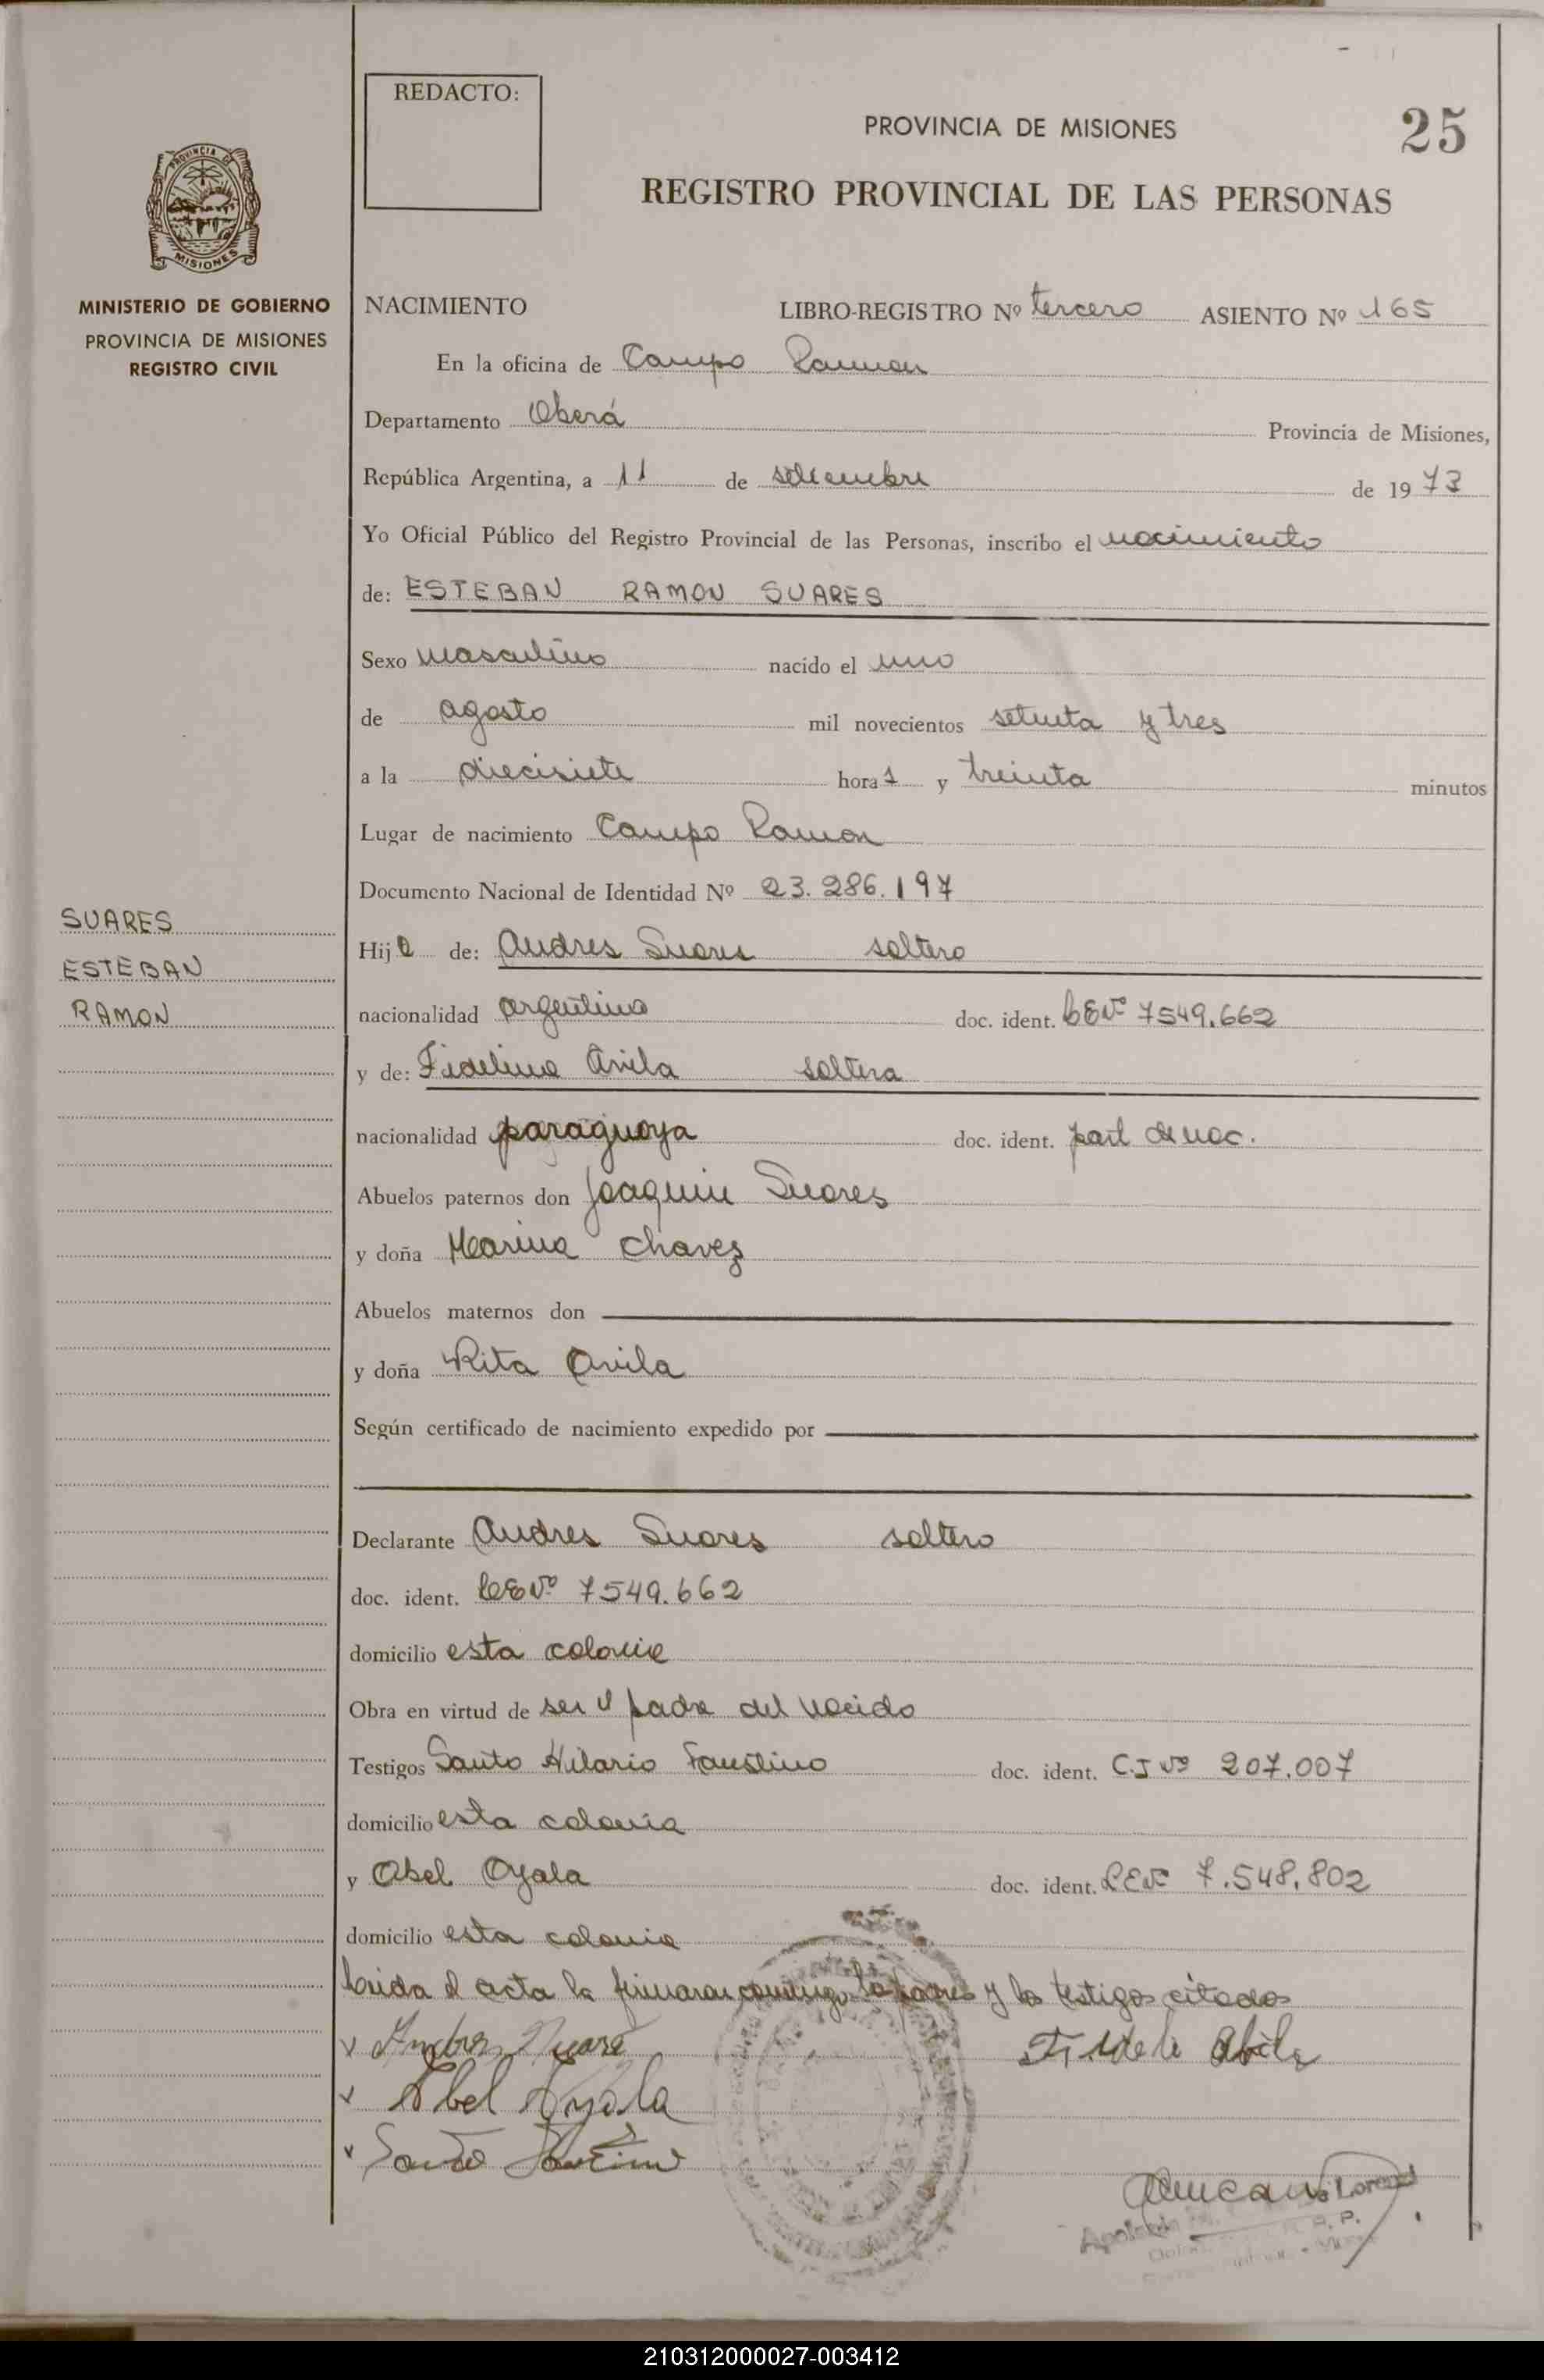 REDACTO:
PROVINCIA DE MISIONES
25
REGISTRO PROVINCIAL DE LAS PERSONAS
PROVINCIA DE
MISIONES
MINISTERIO DE GOBIERNO
PROVINCIA DE MISIONES
REGISTRO CIVIL
NACIMIENTO LIBRO-REGISTRO Nº tercero ASIENTO Nº 165
En la oficina de Campo Ramon
Departamento Oberá Provincia de Misiones,
República Argentina, a 11 de setiembre de 1973
Yo Oficial Público del Registro Provincial de las Personas, inscribo el nacimiento
de: ESTEBAN RAMON SUARES
Sexo masculino nacido el uno
de agosto mil novecientos setenta y tres
a la diecisiete hora s y treinta minutos
Lugar de nacimiento Campo Ramon
Documento Nacional de Identidad Nº 23.286.197
SUARES
ESTEBAN
RAMON
Hijo de: Andres Suares soltero
nacionalidad argentino doc. ident. LE Nº 7549.662
y de: Fidelina Avila soltera
nacionalidad paraguaya doc. ident. part de nac.
Abuelos paternos don Joaquin Suares
y doña Marina Chavez
Abuelos maternos don
y doña Rita Avila
Según certificado de nacimiento expedido por
Declarante Andres Suares soltero
doc. ident. LE Nº 7549.662
domicilio esta colonia
Obra en virtud de ser el padre del nacido
Testigos Santo Hilario Faustino doc. ident. C.I Nº 207.007
domicilio esta colonia
y Abel Ayala doc. ident. LE Nº 7.548.802
domicilio esta colonia
leida el acta la firmaran conmigo los padres y los testigos citados
Andres Suare
Fidele Abila
Abel Ayala
Santo
210312000027-003412